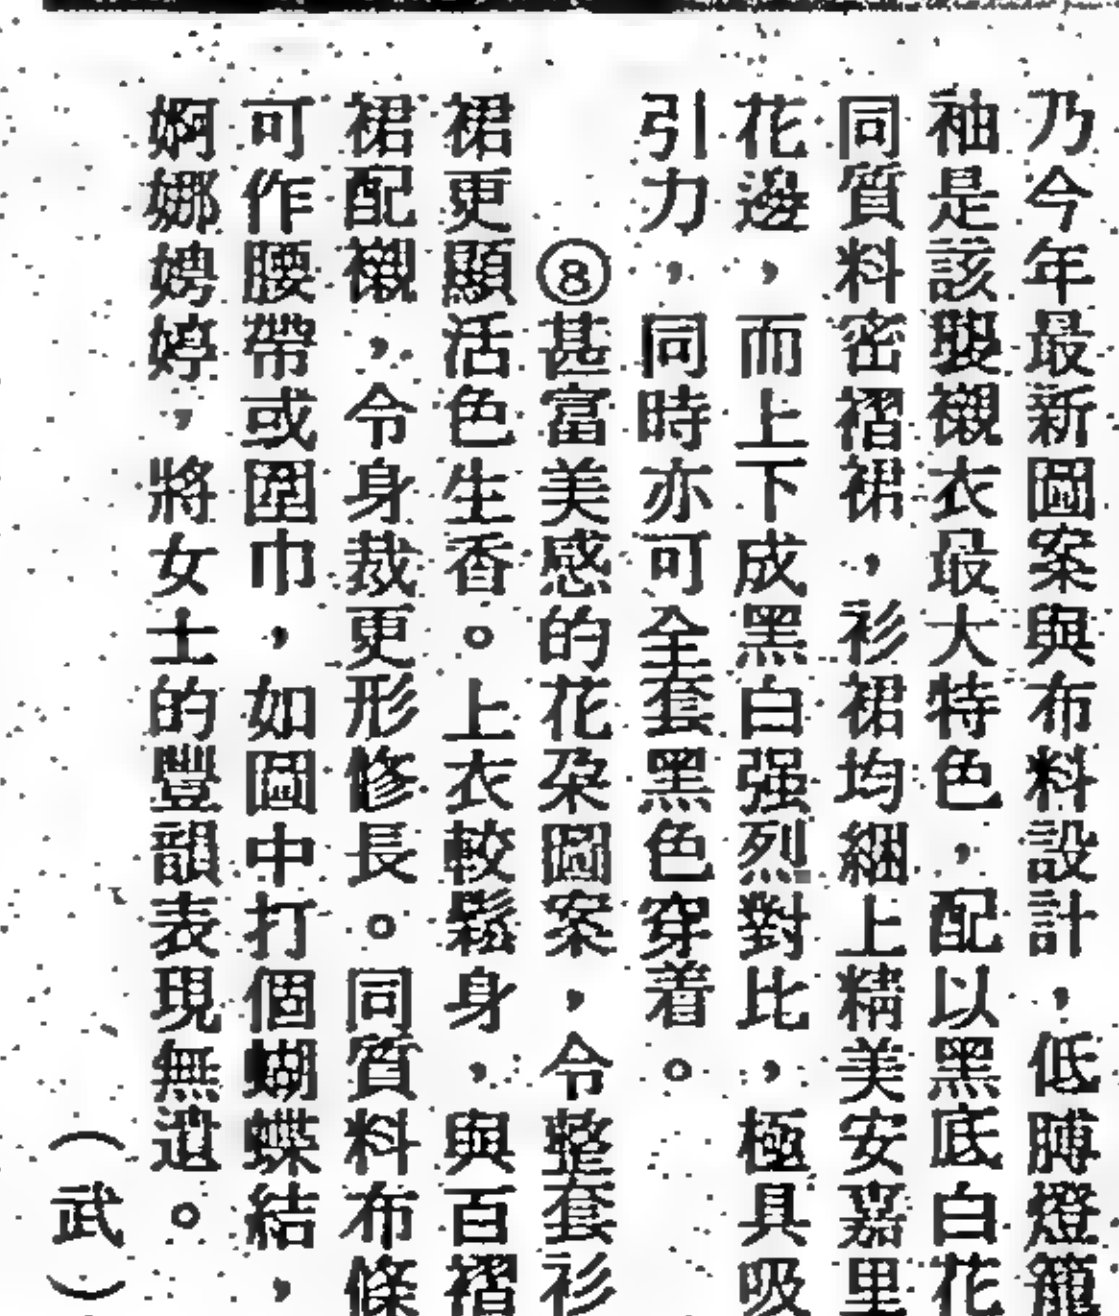 乃今年最新圖案與布料設計，低膊燈籠
袖是該襲襯衣最大特色，配以黑底白花
同質料密褶裙，衫裙均綑上精美安嘉里
花邊，而上下成黑白强烈對比，極具吸
引力，同時亦可全套黑色穿着。
⑧甚富美感的花朶圖案，令整套衫
裙更顯活色生香。上衣較鬆身，與百褶
裙配襯，令身裁更形修長。同質料布條
可作腰帶或圍巾，如圖中打個蝴蝶結，
婀娜娉婷，將女士的豐韻表現無遺。
（武）